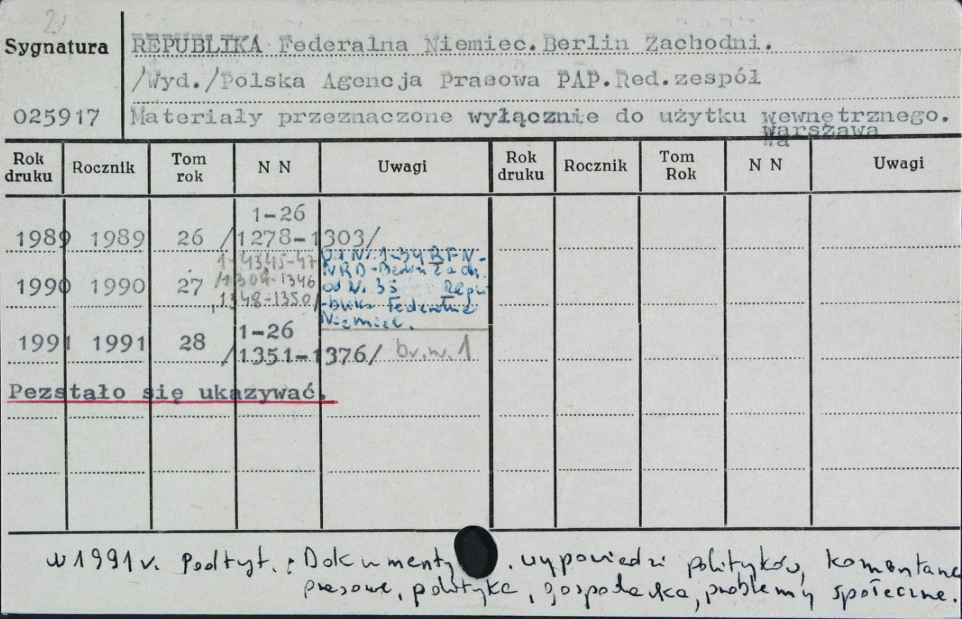 2)
Sygnatura REPUBLIKA Federalna Niemiec.Berlin Zachodni.
/Wyd./Polska Agencja Prasowa PAP.Red.zespół
025917 Materiały przeznaczone wyłącznie do użytku wewnętrznego.
Warszawa
Wa
Rok druku Rocznik Tom rok N N Uwagi Rok druku Rocznik Tom Rok N N Uwagi
1-26
1989 1989 26 /1278-1303/
1-43,45-47 Od Nr. 1-34 RFN-
NRD-Berlin Zach.
1990 1990 27 /1304-1346 od N. 35 Repu
1348-1350/ -blika Federalna
Niemiec.
1-26
1991 1991 28 /1351-1376/ br.n. 1
Pezstało się ukazywać.
w 1991 r. Podtyt.: Dokumenty. wypowiedzi polityków, komentarze
prasowe, polityka, gospodarka, problemy społeczne.